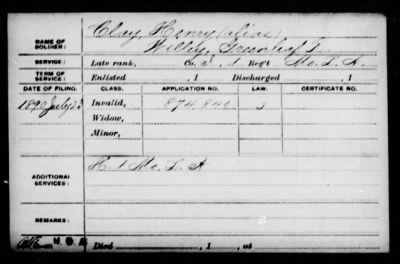 NAME OF SOLDIER: Clay, Henry (alias)
Willey, Greenleaf
SERVICE: Late rank, Co. 1 Reg't Me. L. A.
TERM OF SERVICE: Enlisted , 1 Discharged , 1
DATE OF FILING. CLASS. APPLICATION NO. LAW. CERTIFICATE NO.
1890 July 23 Invalid, 874.840
Widow,
Minor,
ADDITIONAL SERVICES: H 1 Me. L A
REMARKS:
Died , 1 , at